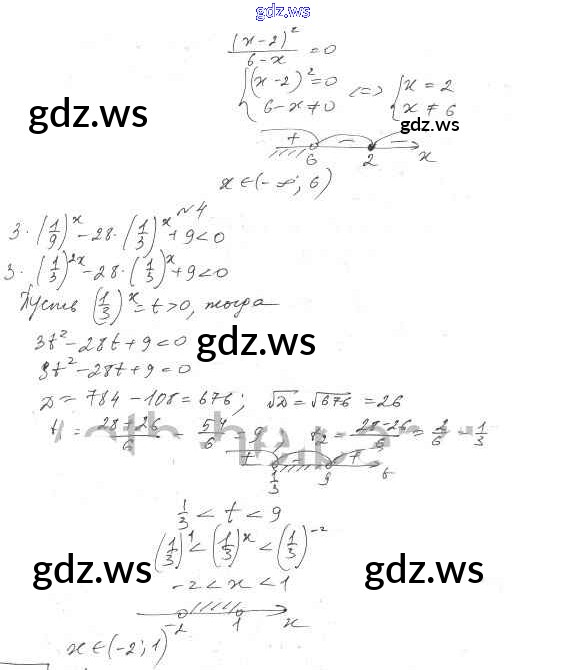 gdz.ws
(x-2)²/(6-x) = 0
{(x-2)² = 0 {x = 2
6-x ≠ 0 <=> x ≠ 6
gdz.ws
gdz.ws
+ - -
6 2 x
x ∈ (-∞; 6)
№4
3·(1/9)^x - 28·(1/3)^x + 9 < 0
3·(1/3)^2x - 28·(1/3)^x + 9 < 0
Пусть (1/3)^x = t > 0, тогда
3t² - 28t + 9 < 0
gdz.ws
3t² - 28t + 9 = 0
D = 784 - 108 = 676; √D = √676 = 26
t = (28+26)/6 = 54/6 = 9 t₂ = (28-26)/6 = 2/6 = 1/3
+ - +
1/3 9 t
1/3 < t < 9
(1/3)^1 < (1/3)^x < (1/3)^-2
gdz.ws
gdz.ws
-2 < x < 1
-2 1 x
x ∈ (-2; 1)